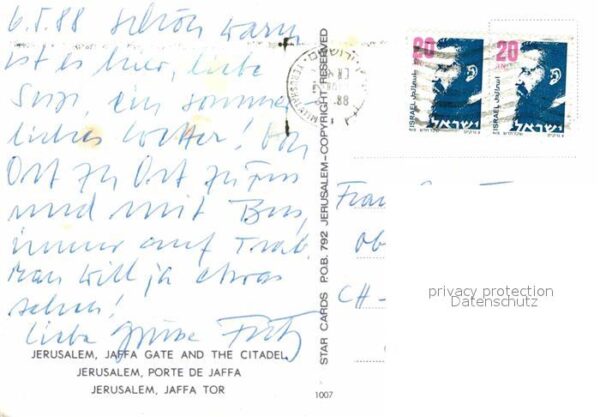 6.5.88 Schön warm
ist es hier, liebe
Susi, ein sommer
liches Wetter! Von
Ort zu Ort zu Fuss
und mit Bus,
immer auf Trab.
Man will ja etwas
sehen!
Liebe Grüsse Fritz
JERUSALEM, JAFFA GATE AND THE CITADEL
JERUSALEM, PORTE DE JAFFA
JERUSALEM, JAFFA TOR
1007
STAR CARDS P.O.B. 792 JERUSALEM-COPYRIGHT RESERVED
ירושלים
JERUSALEM
88
20 20
ISRAEL اسرائيل ISRAEL اسرائيل
ישראל ישראל
Frau
CH-
privacy protection
Datenschutz